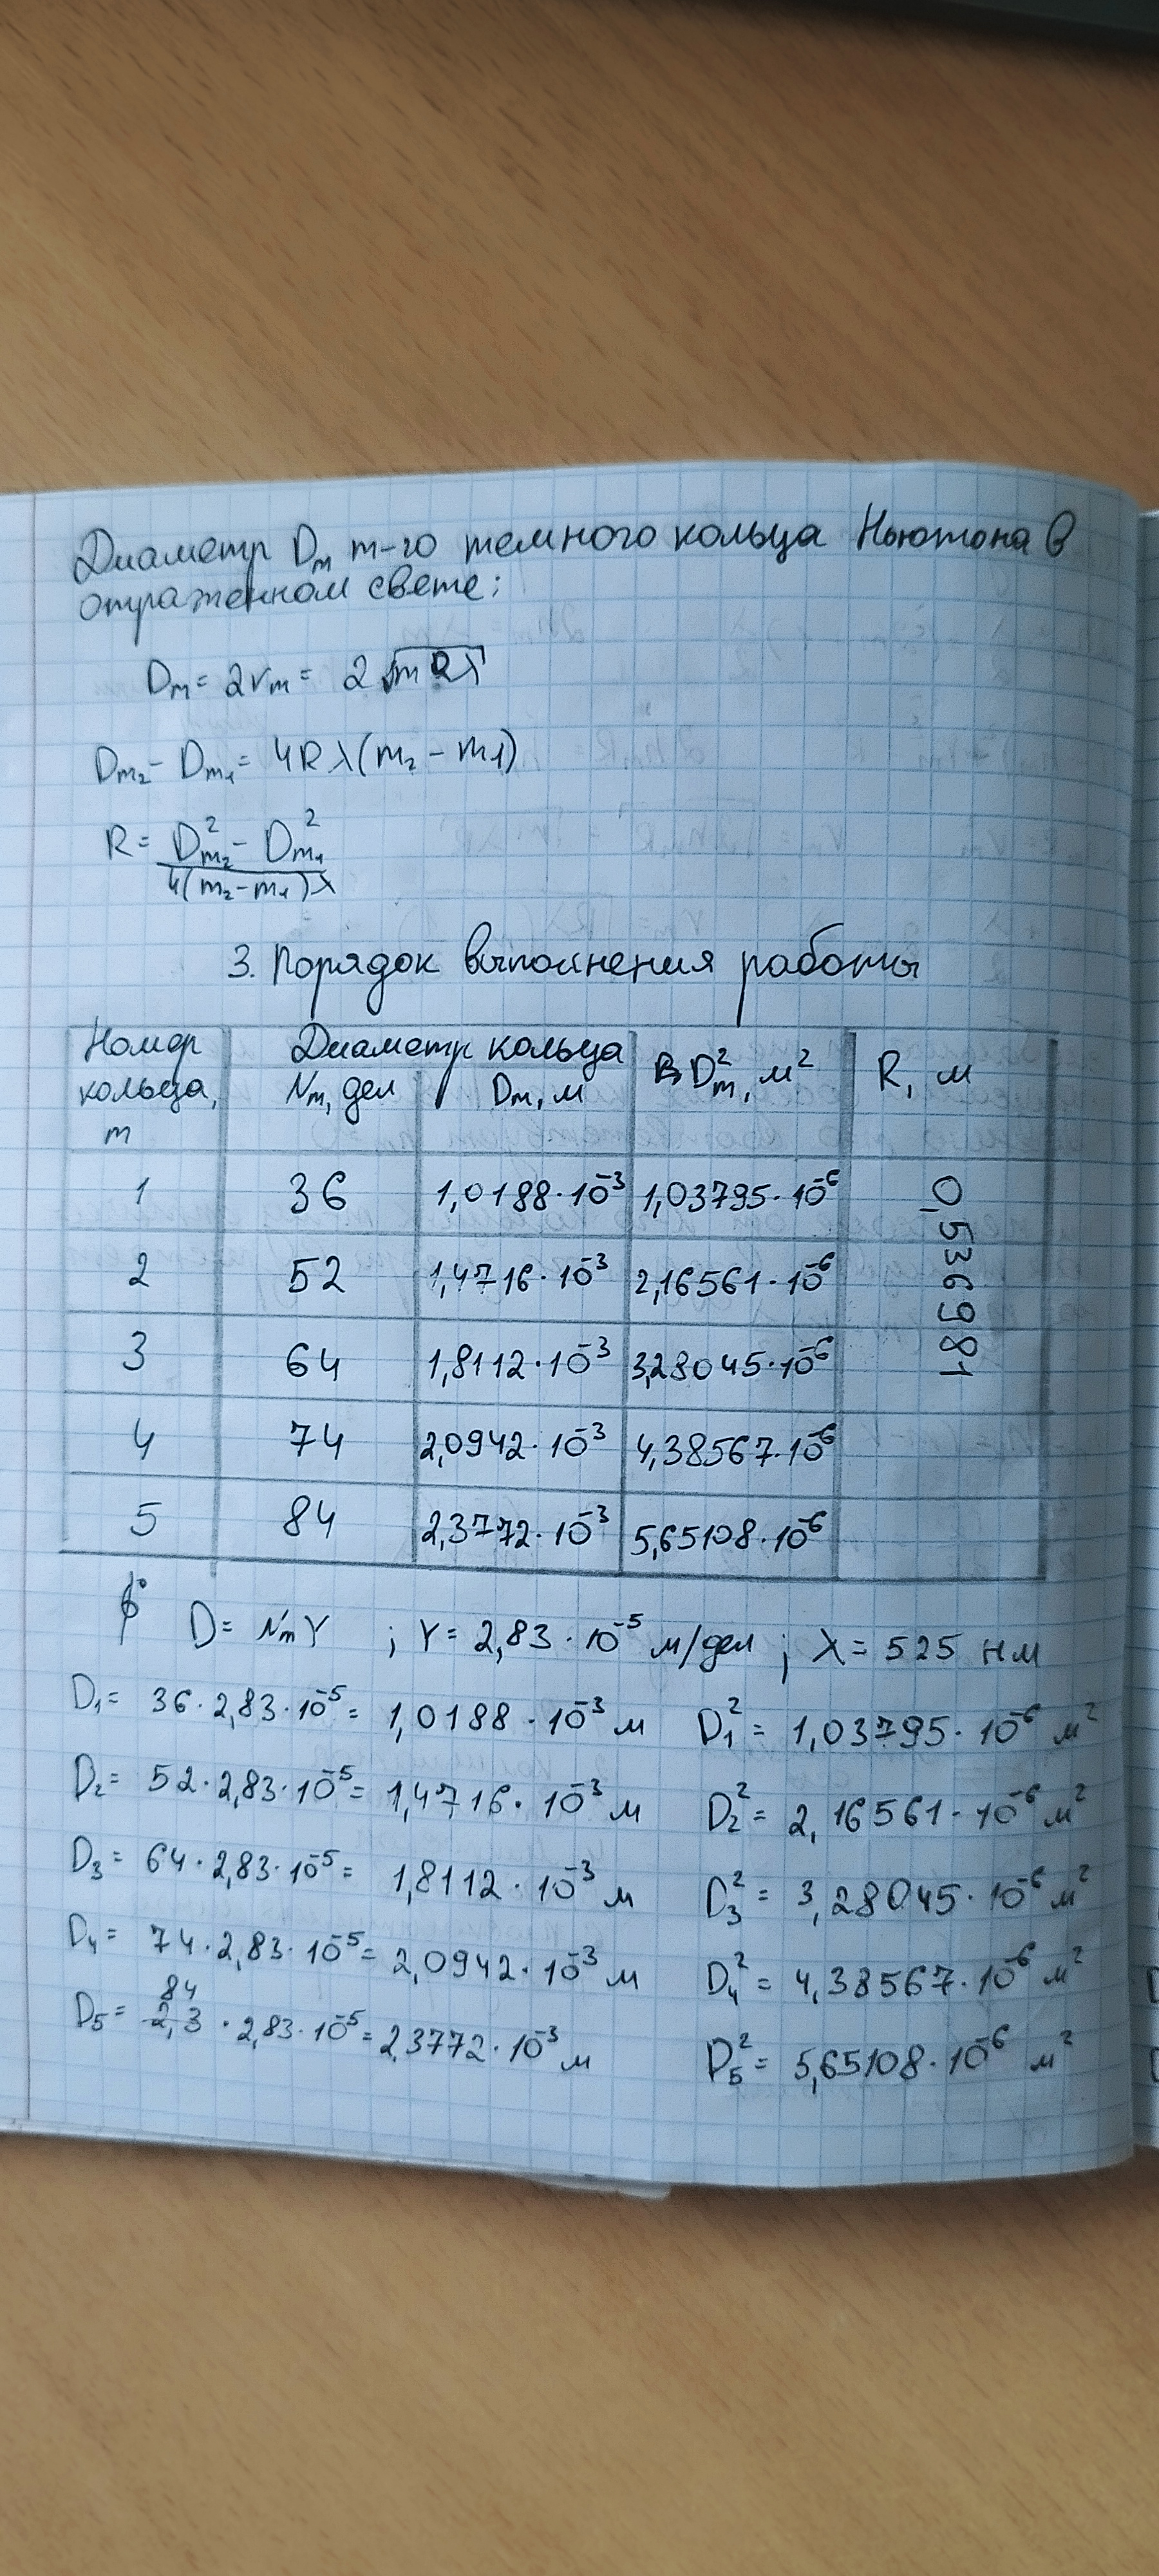 Диаметр Dₘ m-го темного кольца Ньютона в
отраженном свете:
Dₘ = 2rₘ = 2√mRλ
Dₘ₂ - Dₘ₁ = 4Rλ(m₂ - m1)
R = (D²ₘ₂ - D²ₘ₁) / 4(m₂ - m₁)λ
3. Порядок выполнения работы
Номер кольца, m | Диаметр кольца Nₘ, дел | Dₘ, м | D²ₘ, м² | R, м
1 | 36 | 1,0188·10⁻³ | 1,03795·10⁻⁶ | 0,536981
2 | 52 | 1,4716·10⁻³ | 2,16561·10⁻⁶
3 | 64 | 1,8112·10⁻³ | 3,28045·10⁻⁶
4 | 74 | 2,0942·10⁻³ | 4,38567·10⁻⁶
5 | 84 | 2,3772·10⁻³ | 5,65108·10⁻⁶
D = NₘY ; Y = 2,83·10⁻⁵ м/дел ; λ = 525 нм
D₁ = 36·2,83·10⁻⁵ = 1,0188·10⁻³ м D₁² = 1,03795·10⁻⁶ м²
D₂ = 52·2,83·10⁻⁵ = 1,4716·10⁻³ м D₂² = 2,16561·10⁻⁶ м²
D₃ = 64·2,83·10⁻⁵ = 1,8112·10⁻³ м D₃² = 3,28045·10⁻⁶ м²
D₄ = 74·2,83·10⁻⁵ = 2,0942·10⁻³ м D₄² = 4,38567·10⁻⁶ м²
D₅ = 84·2,83·10⁻⁵ = 2,3772·10⁻³ м D₅² = 5,65108·10⁻⁶ м²